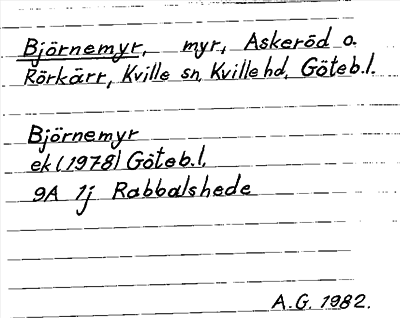 Björnemyr, myr, Askeröd o.
Rörkärr, Kville sn, Kville hd, Göteb.l.
Björnemyr
ek (1978) Göteb.l.
9A 1j Rabbalshede
A.G. 1982.